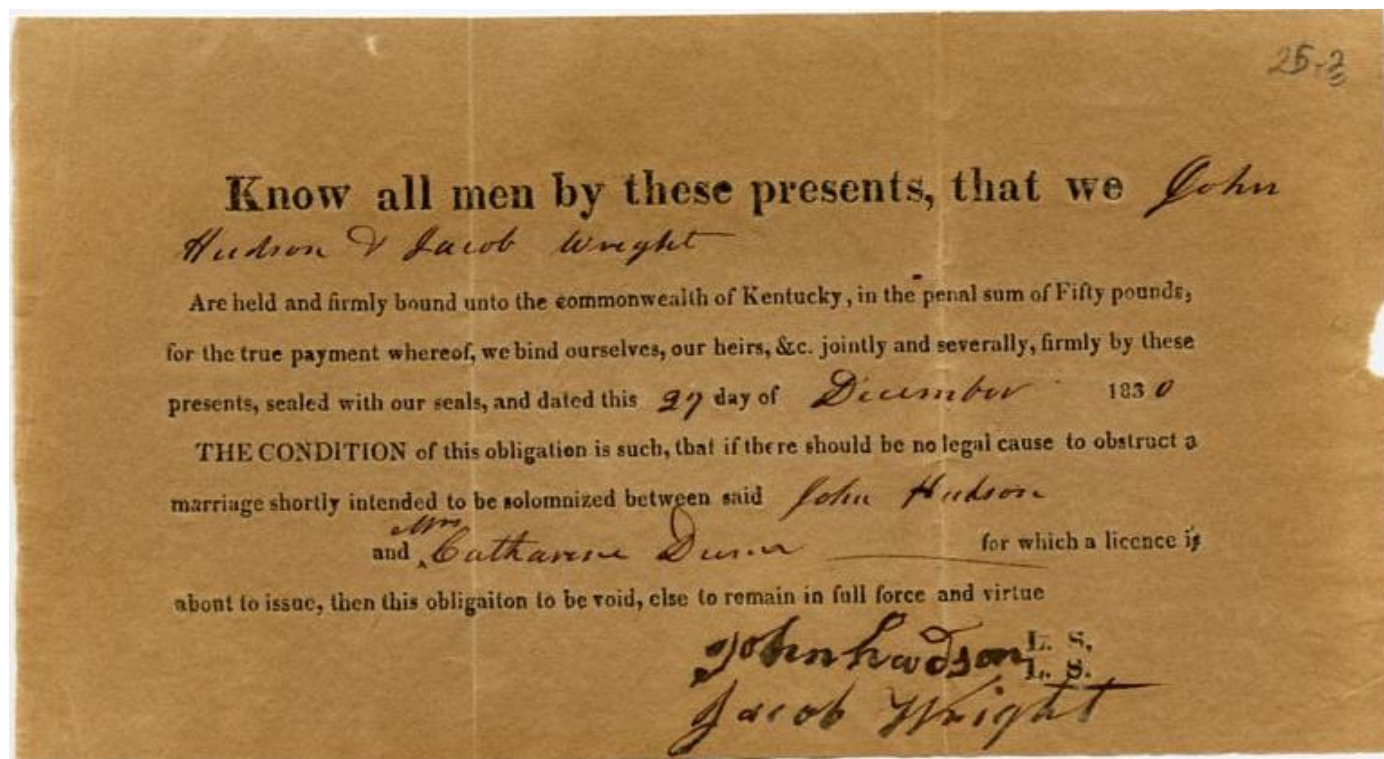 25-2
Know all men by these presents, that we John
Hudson & Jacob Wright
Are held and firmly bound unto the commonwealth of Kentucky, in the penal sum of Fifty pounds,
for the true payment whereof, we bind ourselves, our heirs, &c. jointly and severally, firmly by these
presents, sealed with our seals, and dated this 27 day of December 1830
THE CONDITION of this obligation is such, that if there should be no legal cause to obstruct a
marriage shortly intended to be solomnized between said John Hudson
and Mrs Catharine for which a licence is
about to issue, then this obligaiton to be void, else to remain in full force and virtue
John hudson L. S.
L. S.
Jacob Wright